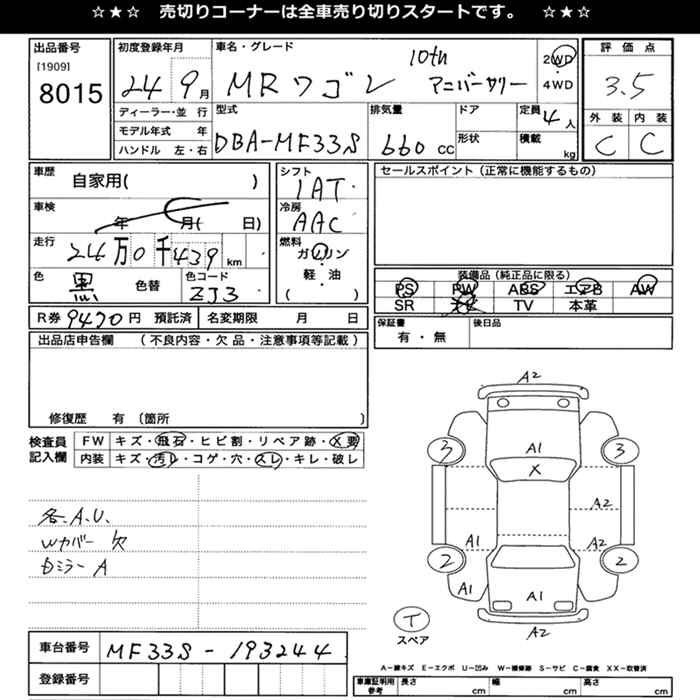 ☆★☆ 売切りコーナーは全車売り切りスタートです。 ☆★☆
出品番号
[1909]
8015
初度登録年月
24 9月
車名・グレード
MRワゴン 10th アニバーサリー
2WD
・
4WD
評価点
3.5
外装 内装
C C
ディーラー・並行
モデル年式 年
ハンドル 左・右
型式
DBA-MF33S
排気量
660 cc
ドア
形状
定員
4人
積載
kg
車歴
自家用( )
車検
年 月( 日)
走行
24万0千439km
色
黒 色替
色コード
ZJ3
シフト
1AT
冷房
AAC
燃料
ガソリン
軽・油
( )
セールスポイント(正常に機能するもの)
装備品(純正品に限る)
PS PW ABS エアB AW
SR ナビ TV 本革
R券 9470円 預託済 名変期限 月 日
保証書
有・無
後日品
出品店申告欄 (不良内容・欠品・注意事項等記載)
修復歴 有 (箇所 )
検査員
記入欄
FW キズ・飛石・ヒビ割・リペア跡・X要
内装 キズ・汚レ・コゲ・穴・スレ・キレ・破レ
各.A.U.
Wカバー 欠
Dミラー A
A2
3 A1 3
X
A2
A1 A2
2 2
A1 A1
A2
T
スペア
車台番号 MF33S-193244
登録番号
A−線キズ E−エクボ U−凹み W−補修跡 S−サビ C−腐食 XX−取替済
車庫証明用
参考
長さ cm 幅 cm 高さ cm